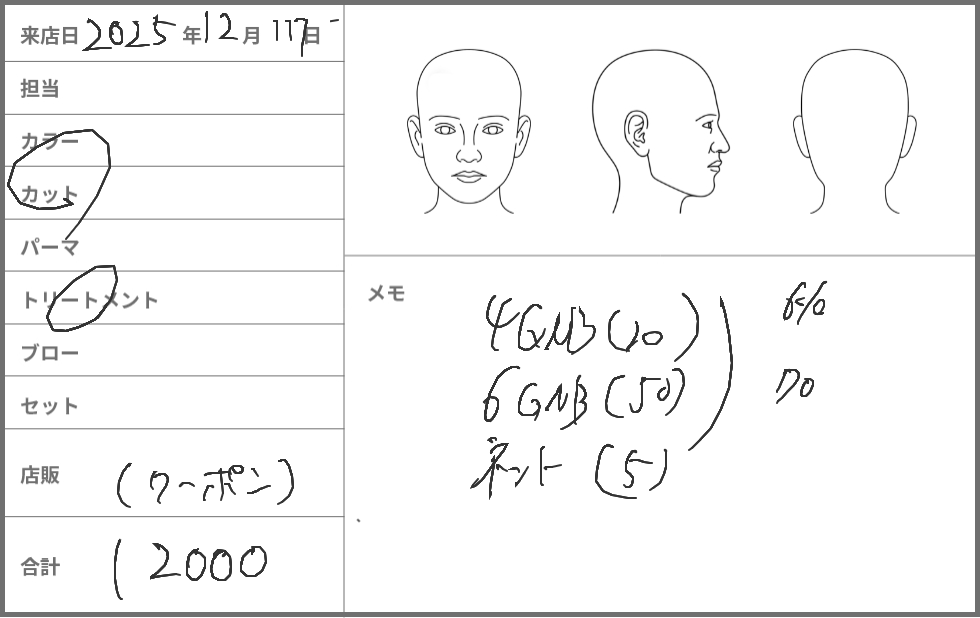 来店日 2025 年 12 月 117日
担当
カラー
カット
パーマ
トリートメント
ブロー
セット
店販 (クーポン)
合計 12000
メモ
4GNB (20)
6GNB (50)
ネット (5)
6%
70